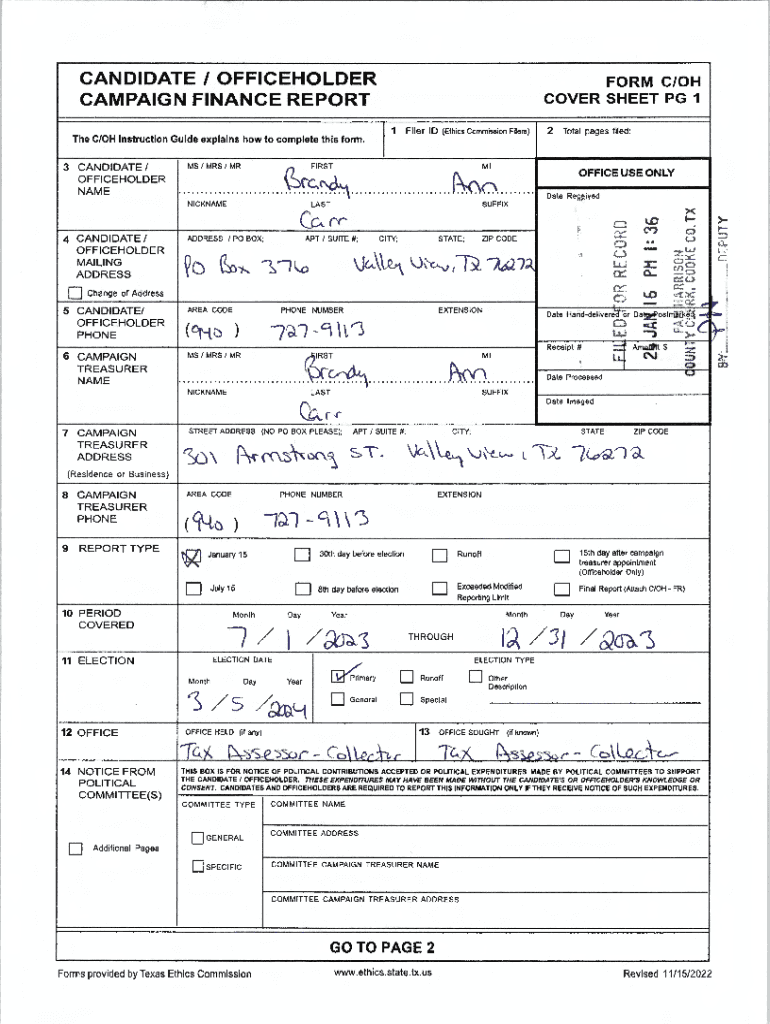 CANDIDATE / OFFICEHOLDER
CAMPAIGN FINANCE REPORT
FORM C/OH
COVER SHEET PG 1
The C/OH Instruction Guide explains how to complete this form.
1 Filer ID (Ethics Commission Filers)
2 Total pages filed:
3 CANDIDATE / OFFICEHOLDER NAME
MS / MRS / MR FIRST MI
Brandy Ann
NICKNAME LAST SUFFIX
Carr
OFFICE USE ONLY
Date Received
FILED FOR RECORD
24 JAN 16 PM 1:36
PAM HARRISON
COUNTY CLERK, COOKE CO. TX
BY DEPUTY
Date Hand-delivered or Date Postmarked
Receipt # Amount $
Date Processed
Date Imaged
4 CANDIDATE / OFFICEHOLDER MAILING ADDRESS
Change of Address
ADDRESS / PO BOX; APT / SUITE #; CITY; STATE; ZIP CODE
PO Box 376 Valley View, TX 76272
5 CANDIDATE/ OFFICEHOLDER PHONE
AREA CODE PHONE NUMBER EXTENSION
(940) 727-9113
6 CAMPAIGN TREASURER NAME
MS / MRS / MR FIRST MI
Brandy Ann
NICKNAME LAST SUFFIX
Carr
7 CAMPAIGN TREASURER ADDRESS
(Residence or Business)
STREET ADDRESS (NO PO BOX PLEASE); APT / SUITE #; CITY; STATE ZIP CODE
301 Armstrong ST. Valley View, TX 76272
8 CAMPAIGN TREASURER PHONE
AREA CODE PHONE NUMBER EXTENSION
(940) 727-9113
9 REPORT TYPE
January 15
30th day before election
Runoff
15th day after campaign treasurer appointment (Officeholder Only)
July 15
8th day before election
Exceeded Modified Reporting Limit
Final Report (Attach C/OH - FR)
10 PERIOD COVERED
Month Day Year Month Day Year
7 / 1 / 2023 THROUGH 12 / 31 / 2023
11 ELECTION
ELECTION DATE ELECTION TYPE
Month Day Year
3 / 5 / 2024
Primary
Runoff
Other Description
General
Special
12 OFFICE
OFFICE HELD (if any)
Tax Assessor - Collector
13 OFFICE SOUGHT (if known)
Tax Assessor - Collector
14 NOTICE FROM POLITICAL COMMITTEE(S)
Additional Pages
THIS BOX IS FOR NOTICE OF POLITICAL CONTRIBUTIONS ACCEPTED OR POLITICAL EXPENDITURES MADE BY POLITICAL COMMITTEES TO SUPPORT
THE CANDIDATE / OFFICEHOLDER. THESE EXPENDITURES MAY HAVE BEEN MADE WITHOUT THE CANDIDATE'S OR OFFICEHOLDER'S KNOWLEDGE OR
CONSENT. CANDIDATES AND OFFICEHOLDERS ARE REQUIRED TO REPORT THIS INFORMATION ONLY IF THEY RECEIVE NOTICE OF SUCH EXPENDITURES.
COMMITTEE TYPE
GENERAL
SPECIFIC
COMMITTEE NAME
COMMITTEE ADDRESS
COMMITTEE CAMPAIGN TREASURER NAME
COMMITTEE CAMPAIGN TREASURER ADDRESS
GO TO PAGE 2
Forms provided by Texas Ethics Commission www.ethics.state.tx.us Revised 11/15/2022